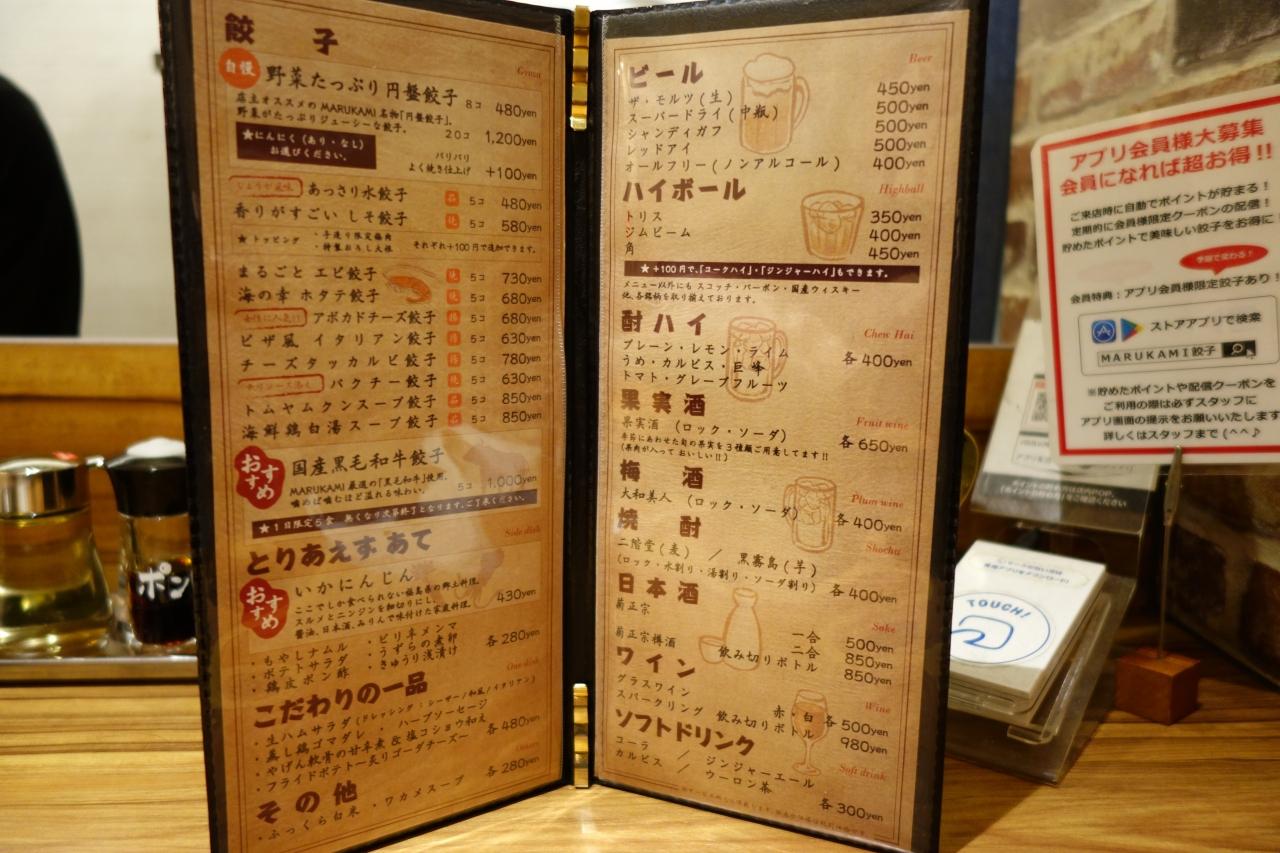 餃子
Gyoza
自慢
野菜たっぷり円盤餃子 8コ 480yen
店主オススメのMARUKAMI名物「円盤餃子」。
野菜がたっぷりジューシーな餃子。
20コ 1,200yen
★にんにく(あり・なし)
お選びください。
パリパリ
よく焼き仕上げ +100yen
しょうが風味 あっさり水餃子 5コ 480yen
香りがすごい しそ餃子 焼 5コ 580yen
★トッピング ・手造り限定
・特製おろし大根 それぞれ+100円で追加できます。
まるごと エビ餃子 焼 5コ 730yen
海の幸 ホタテ餃子 焼 5コ 680yen
女性に人気!! アボカドチーズ餃子 5コ 680yen
ピザ風 イタリアン餃子 5コ 630yen
チーズタッカルビ餃子 5コ 780yen
パクチー餃子 焼 5コ 630yen
トムヤムクンスープ餃子 5コ 850yen
海鮮鶏白湯スープ餃子 5コ 850yen
おすすめ
国産黒毛和牛餃子
MARUKAMI厳選の「黒毛和牛」使用。
噛めば噛むほど溢れる味わい。
5コ 1,000yen
★1日限定5食 無くなり次第終了となります。ご了承ください。
とりあえずあて
Side dish
おすすめ
いかにんじん 430yen
ここでしか食べられない福島県の郷土料理。
スルメとニンジンを細切りにし、
醤油、日本酒、みりんで味付けた家庭料理。
・もやしナムル ・ピリ辛メンマ
・ポテトサラダ ・うずらの煮卵
・鶏皮ポン酢 ・きゅうり浅漬け
各280yen
こだわりの一品
One dish
・生ハムサラダ(ドレッシング:シーザー/和風/イタリアン)
・蒸し鶏ゴマダレ ・ハーブソーセージ
・やげん軟骨の甘辛煮&塩コショウ和え
・フライドポテト〜炙りゴーダチーズ〜
各480yen
その他
Others
・ふっくら白米 ・ワカメスープ
各280yen
ビール
Beer
ザ・モルツ(生) 450yen
スーパードライ(中瓶) 500yen
シャンディガフ 500yen
レッドアイ 500yen
オールフリー(ノンアルコール) 400yen
ハイボール
Highball
トリス 350yen
ジムビーム 400yen
角 450yen
★+100円で、「コークハイ」・「ジンジャーハイ」もできます。
メニュー以外にも スコッチ・バーボン・国産ウィスキー
他、各銘柄を取り揃えております。
酎ハイ
Chew Hai
プレーン・レモン・ライム
うめ・カルピス・巨峰
トマト・グレープフルーツ
各400yen
果実酒
Fruit wine
果実酒 (ロック・ソーダ) 各650yen
季節にあわせた旬の果実を3種類ご用意してます!!
(果肉が入っておいしい!!)
梅酒
Plum wine
大和美人 (ロック・ソーダ) 各400yen
焼酎
Shochu
二階堂(麦) / 黒霧島(芋)
(ロック・水割り・湯割り・ソーダ割り) 各400yen
日本酒
Sake
菊正宗 一合 500yen
二合 850yen
菊正宗樽酒 飲み切りボトル 850yen
ワイン
Wine
グラスワイン 赤・白 各500yen
スパークリング 飲み切りボトル 980yen
ソフトドリンク
Soft drink
コーラ / ジンジャーエール
カルピス / ウーロン茶
各300yen
アプリ会員様大募集
会員になれば超お得!!
ご来店時に自動でポイントが貯まる!
定期的に会員様限定クーポンの配信!
貯めたポイントで美味しい餃子をお得に
季節で変わる!
会員特典:アプリ会員様限定餃子あり!
ストアアプリで検索
MARUKAMI餃子
※貯めたポイントや配信クーポンを
ご利用の際は必ずスタッフに
アプリ画面の提示をお願いいたします
詳しくはスタッフまで(^^♪
TOUCH!
ポン